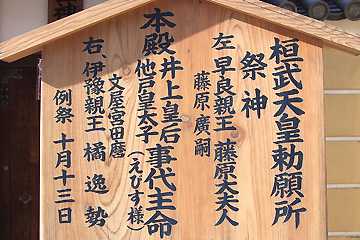 桓武天皇勅願所
祭神
左 早良親王 藤原大夫人
藤原廣嗣
本殿 井上皇后 事代主命
他戸皇太子 (えびす様)
文屋宮田麿
右、伊豫親王 橘逸勢
例祭 十月十三日